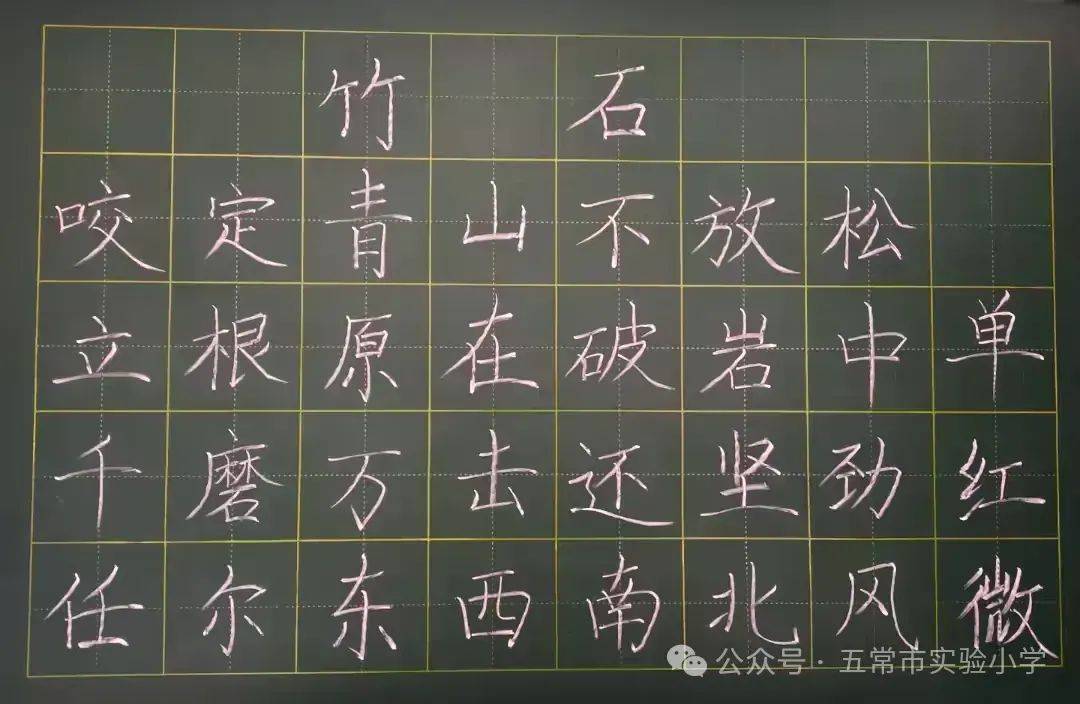 竹石
咬定青山不放松
立根原在破岩中单
千磨万击还坚劲红
任尔东西南北风微
公众号·五常市实验小学